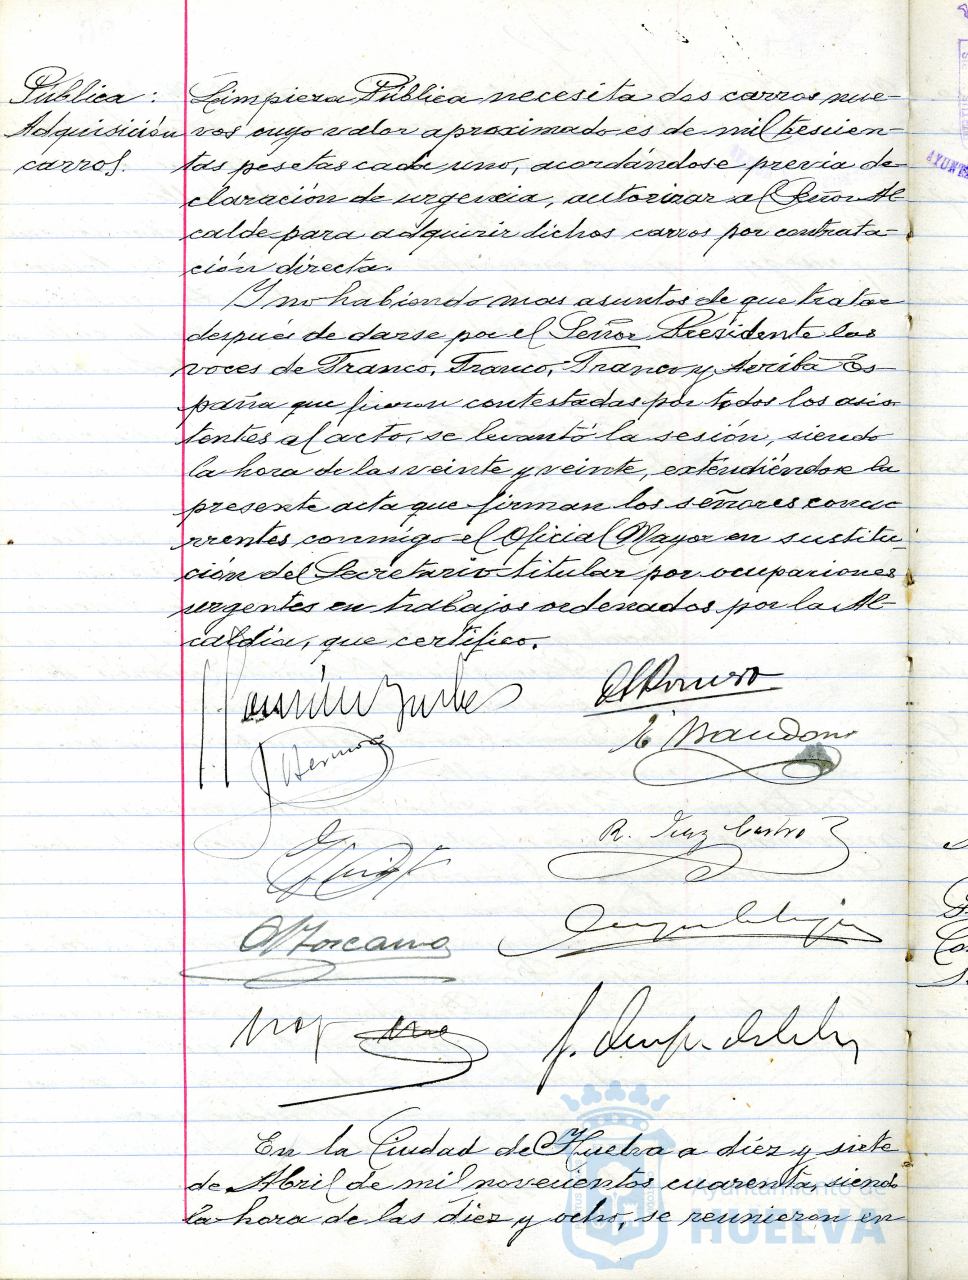 Pública:
Adquisición
carros.
Limpieza Pública necesita dos carros nue-
vos cuyo valor aproximado es de mil tescien-
tas pesetas cada uno, acordándose previa de-
claración de urgencia, autorizar al Señor Al-
calde para adquirir dichos carros por contrata-
ción directa.
Y no habiendo mas asuntos de que tratar
después de darse por el Señor Presidente las
voces de Franco, Franco, Franco y Arriba Es-
paña que fueron contestadas por todos los asis-
tentes al acto, se levantó la sesión, siendo
la hora de las veinte y veinte, extendiéndose la
presente acta que firman los señores concu-
rrentes conmigo el Oficial Mayor en sustitu-
ción del Secretario titular por ocupaciones
urgentes en trabajos ordenados por la Al-
caldía, que certifico.
Romero
R. Díaz Castro
Toscano
En la Ciudad de Huelva a diez y siete
de Abril de mil novecientos cuarenta, siendo
la hora de las diez y ocho, se reunieron en
Ayuntamiento de
HUELVA